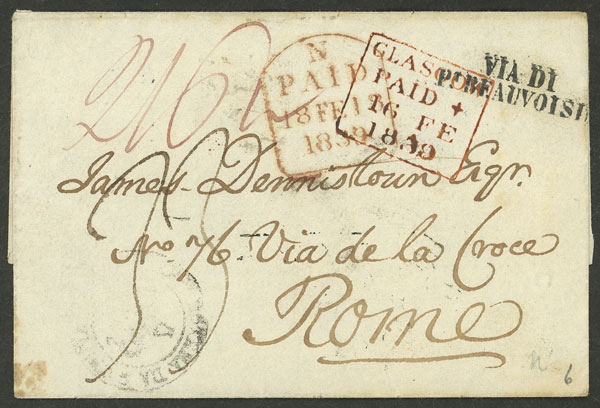 N
PAID
18 FE 18
1839
GLASGOW
PAID
16 FE
1839
VIA DI
P. BEAUVOISIN
James Dennistoun Esqr.
No 76 Via de la Croce
Rome
6